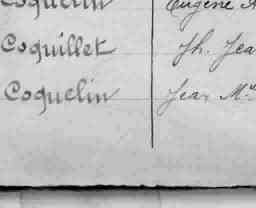 Coquelin Eugène
Coquillet Jh. Jea
Coquelin Jean M.